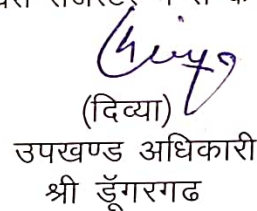 (दिव्या)
उपखण्ड अधिकारी
श्री डूँगरगढ